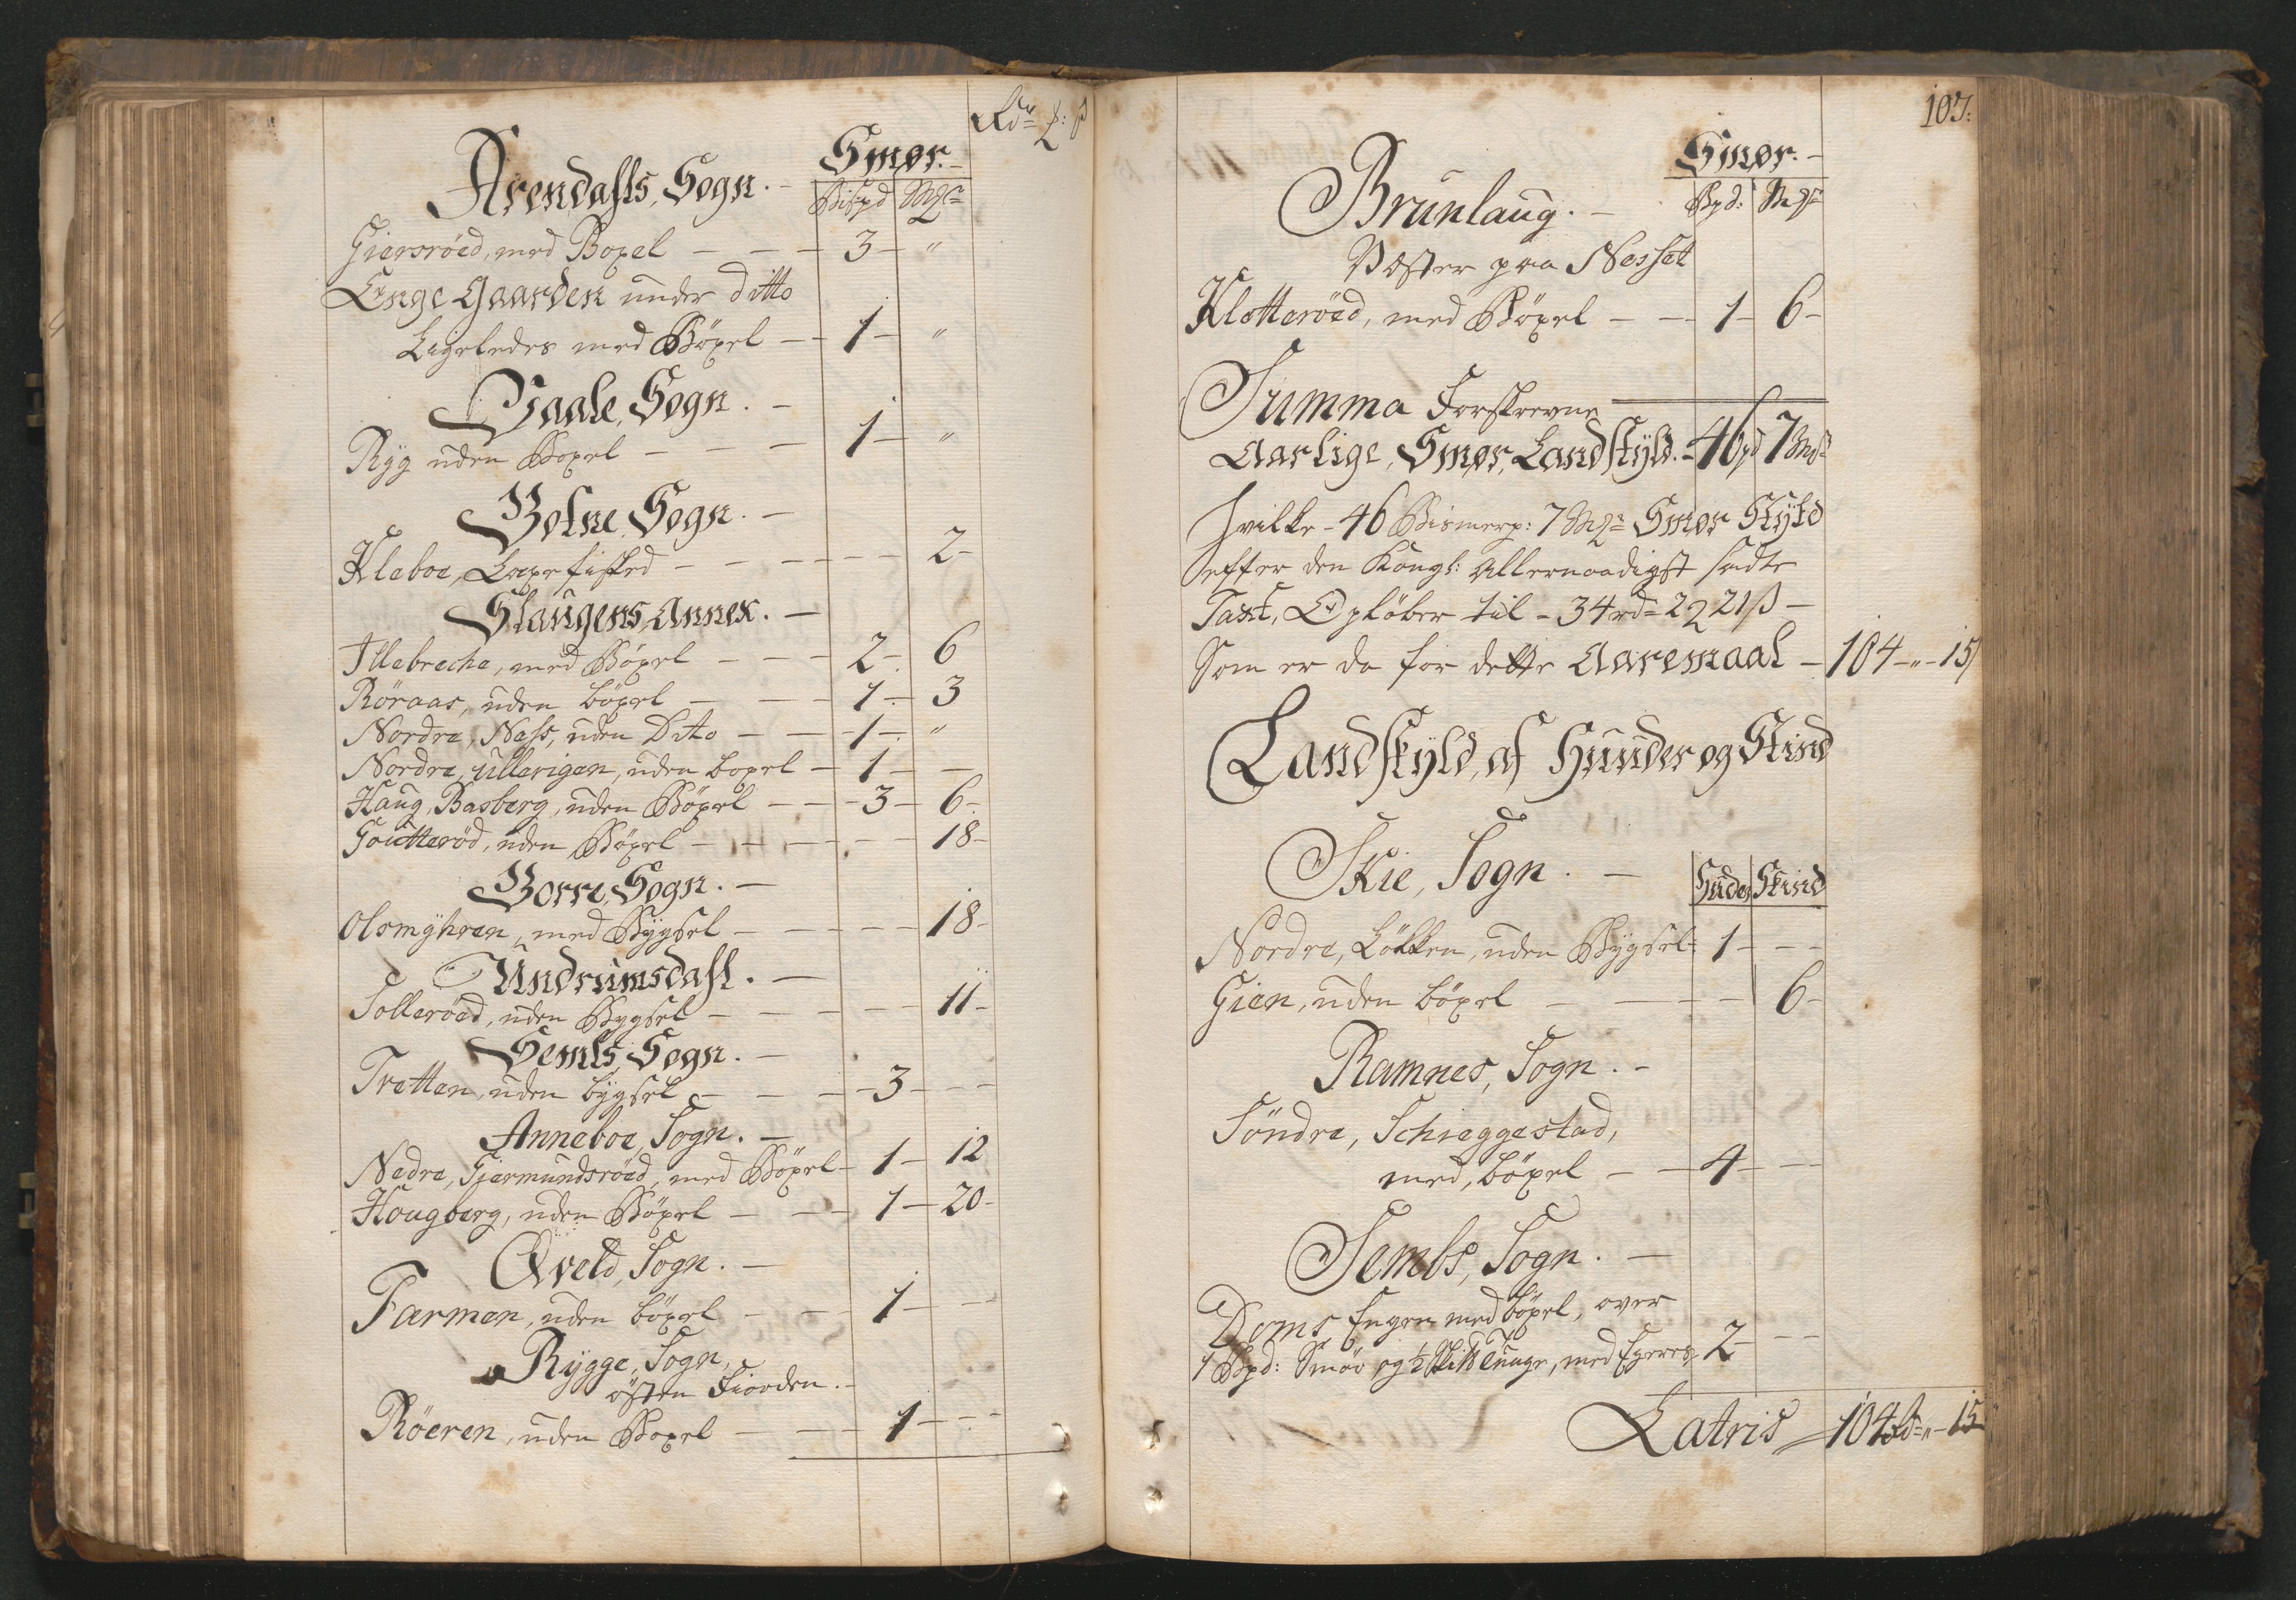 Rdr ß
Arendahls, Sogn. Smør.
Bispd Mrk
Giersröed, med Boxel 3 "
Enge Gaarden under ditto
Ligeledes med Böxel 1 "
Vaale, Sogn.
Ryg uden Boxel 1 "
Botne, Sogn.
Kleboe, Laxefisked 2
Slaugens, Annex.
Illebreche, med Böxel 2 6
Röraas, uden böxel 1 3
Nordre, Næss, uden Ditto 1 "
Nordre, ullerigen, uden boxel 1
Haug, Basberg, uden Böxel 3 6
Goutteröd, uden Böxel 18
Borre, Sogn.
Olsmÿhren, med Bÿgsel 18
Undrumsdahl.
Solleröed, uden Bygsel 11
Sembs, Sogn.
Tretten, uden bÿgsel 3
Anneboe, Sogn.
Nedre, Giermundsröed, med Böxel 1 12
Hougberg, uden Böxel 1 20
Qveld, Sogn.
Farmen, uden böxel 1
Rÿgge, Sogn,
östen Fiorden.
Röeren, uden Boxel 1
107:
Smør.
Brunlaug. Bpd: Mrk
Vester paa Nesset
Klotteröed, med Böxel 1 6
Summa Forskrevne
Aarlige, Smør, Landskÿld. 46 pd 7 Mrk
Hvilke 46 Bismerp: 7 Mrk Smør Skÿld
efter den Kongl: Allernaadigst satte
Taxt, Opløber til 34 rd 2 21 ß
Som er da for dette Aaremaal 104 " 15
Landskÿld, af Huuder og Skind
Skie, Sogn. Huder Skind
Nordre, Lökken, uden Bÿgsel 1
Gien, uden böxel 6
Ramnes, Sogn.
Söndre, Schieggestad,
med, böxel 4
Sembs, Sogn.
Doms Engen med böxel, over
1 Bpd: Smör og ½ Tunge, med 2
Latris 104 Rd " 15